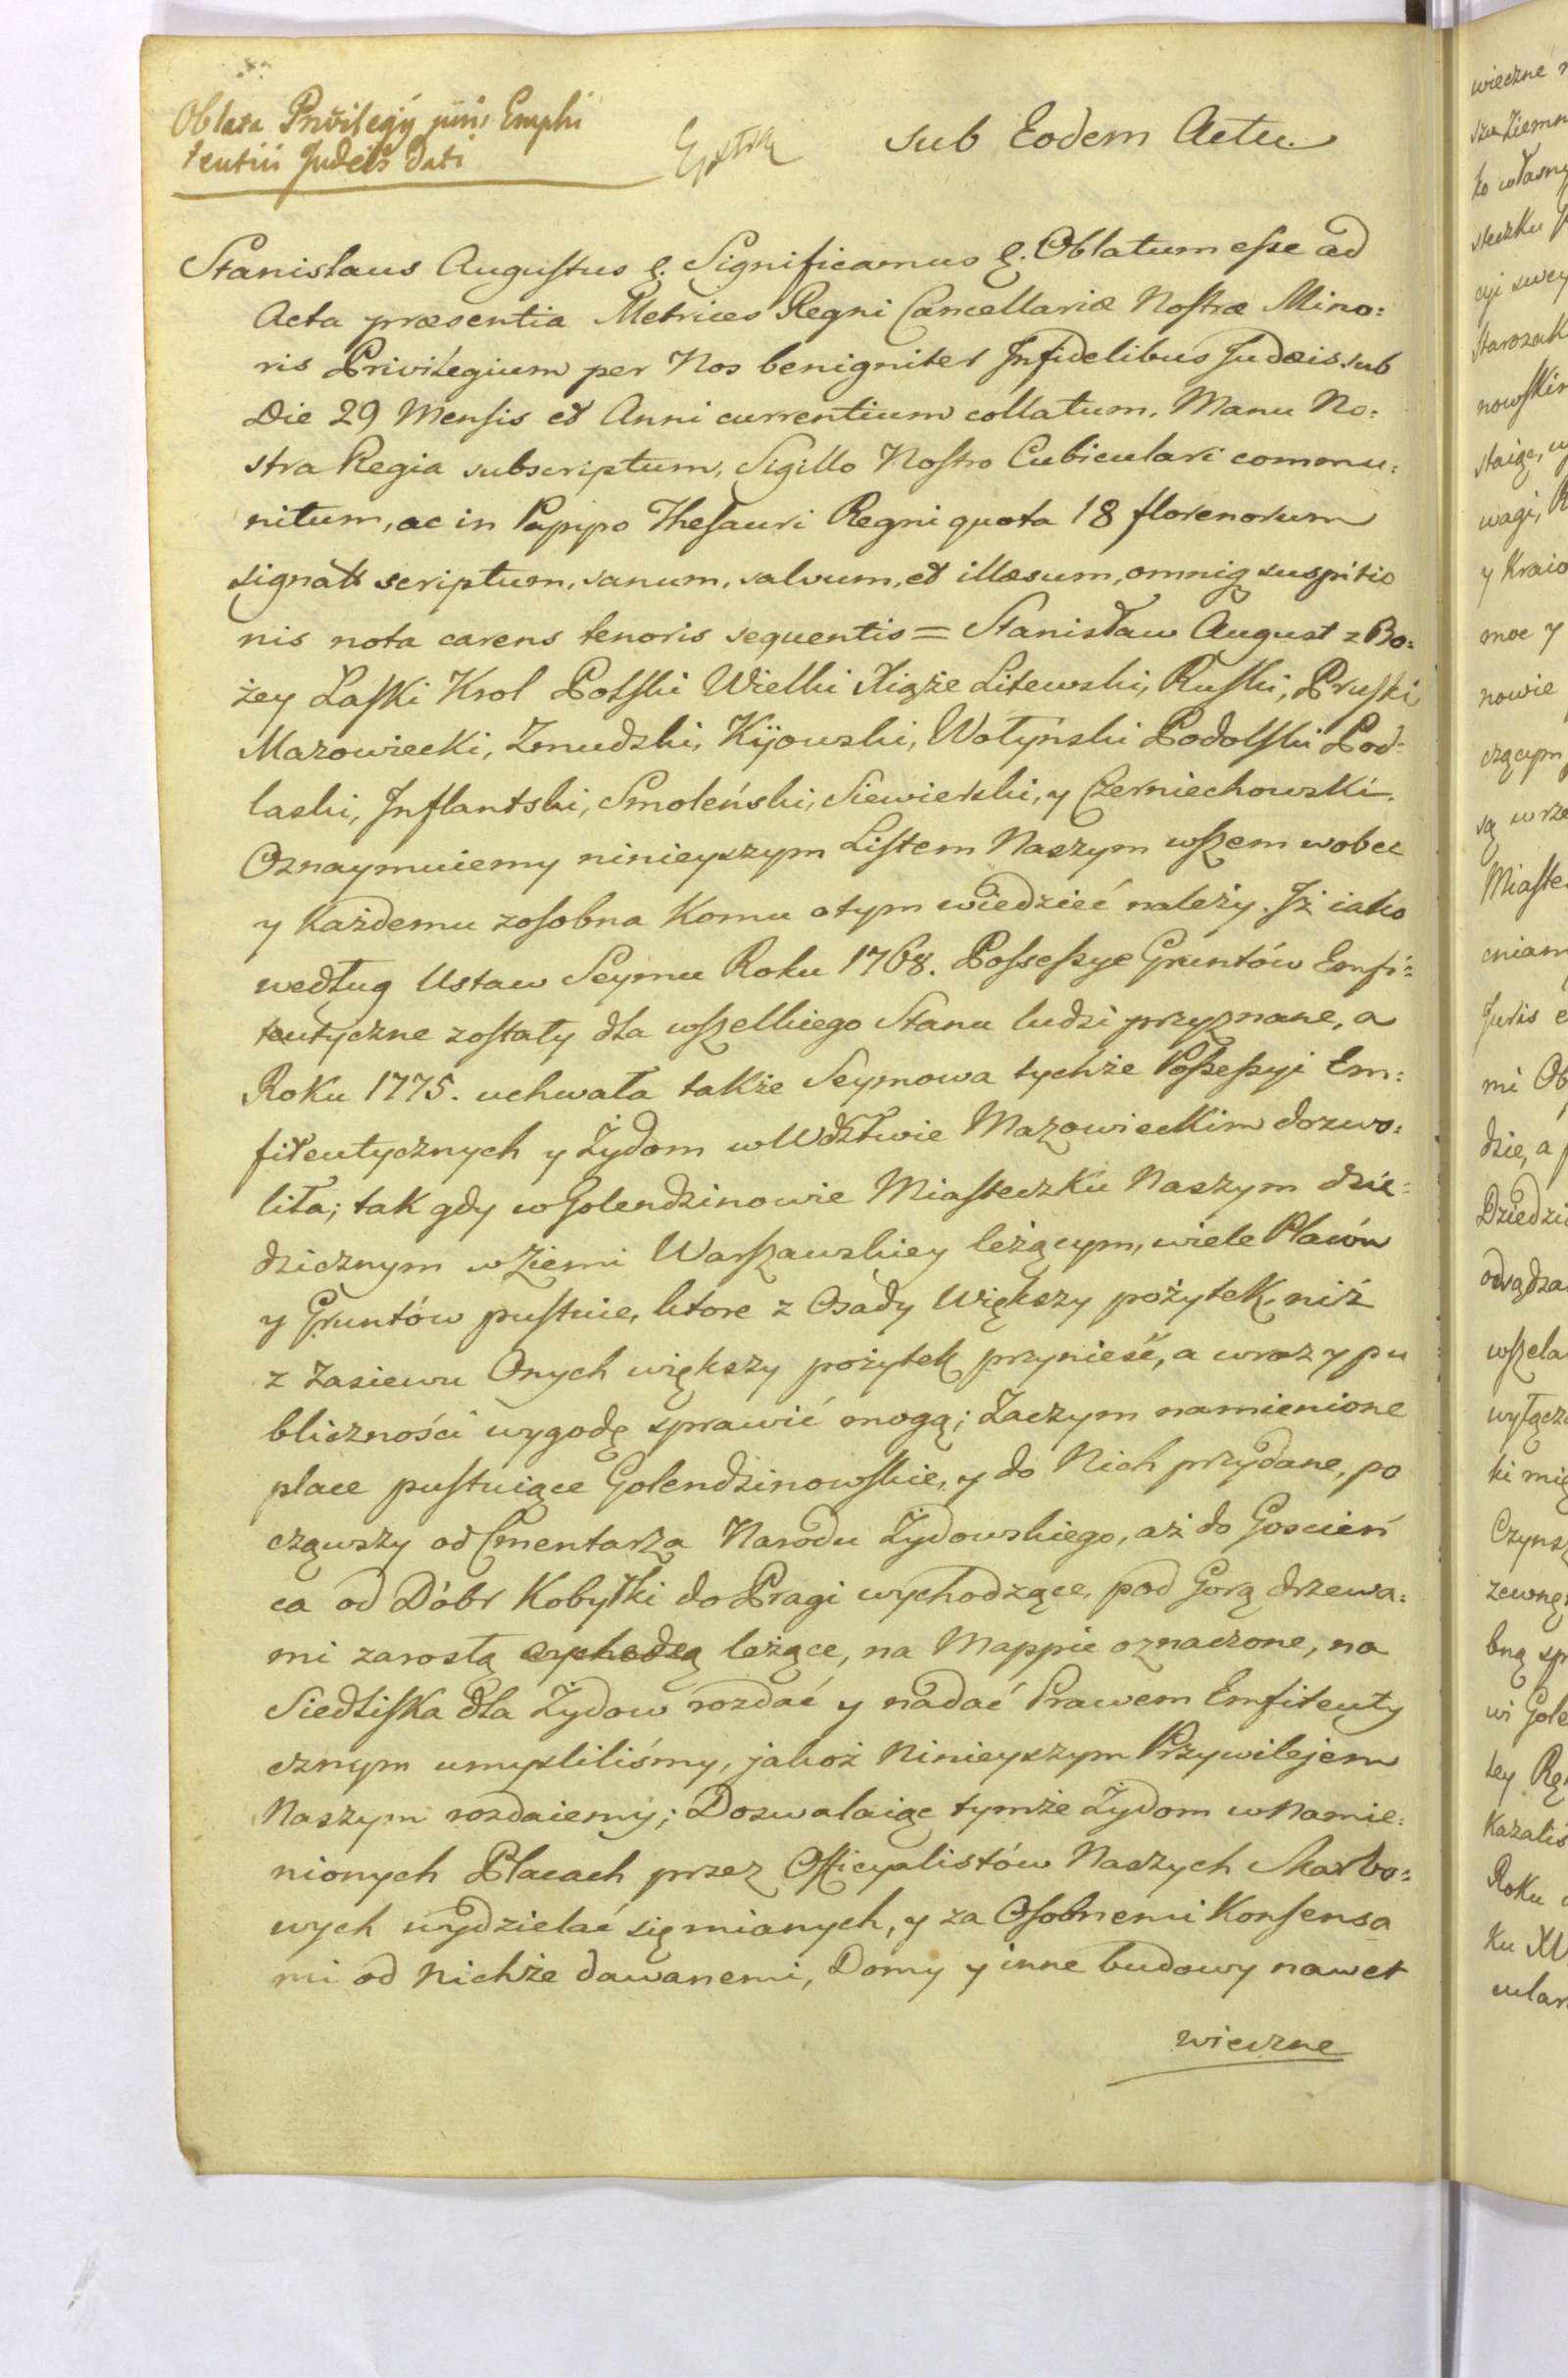 Oblata Privilegij juris Emphi
teutici Judeis dati
sub Eodem Actu
Stanislaus Augustus &. Significamus &. Oblatum esse ad
Acta præsentia Metrices Regni Cancellariæ Nostræ Mino:
ris Privilegium per Nos benigniter Infidelibus Judæis sub
Die 29 Mensis et Anni currentium collatum. Manu No:
stra Regia subscriptum, Sigillo Nostro Cubiculari commu:
nitum, ac in Papyro Thesauri Regni quota 18 florenorum
signata scriptum, sanum, salvum, et illæsum, omniq suspitio
nis nota carens tenoris sequentis = Stanisław August z Bo:
żey Łaski Krol Polski Wielki Xiąże Litewski, Ruski, Pruski
Mazowiecki, Zmudzki, Kijowski, Wołyński Podolski Pod:
laski, Inflantski, Smoleński, Siewierski, y Czerniechowski.
Oznaymuiemy ninieyszym Listem Naszym wszem wobec
y Każdemu zosobna Komu otym wiedzieć należy. Iż iako
według Ustaw Seymu Roku 1768. Possessye Gruntów Emfi:
teutyczne zostały dla wszelkiego Stanu ludzi przyznane, a
Roku 1775. uchwała także Seymowa tychże Possessyi Em:
fiteutycznych y Żydom w Wdztwie Mazowieckim dozwo:
liła; tak gdy w Golendzinowie Miasteczku Naszym dzie:
dzicznym w Ziemi Warszawskiey leżącym, wiele Placów
y Gruntów pustuie, ktore z Osady większy pożytek, niż
z zasiewu Onych większy pożytek przynieść, a wraz y pu
bliczności wygodę sprawić mogą; Zaczym namienione
place pustuiące Golendzinowskie, y do Nich przydane, po
cząwszy od Cmentarza Narodu Żydowskiego, aż do Goscień
ca od Dóbr Kobyłki do Pragi wychodzące, pod Gorą drzewa:
mi zarosłą wychodzą leżące, na Mappie oznaczone, na
Siedliska dla Żydow rozdać y nadać Prawem Emfiteuty
cznym umysliliśmy, jakoż Ninieyszym Przywilejem
Naszym rozdaiemy; Dozwalaiąc tymże Żydom w Namie:
nionych Placach przez Officyalistów Naszych Skarbo:
wych wydzielać się mianych, y za Osobnemi Konsensa
mi od Nichże dawanemi, Domy y inne budowy nawet
wieczne